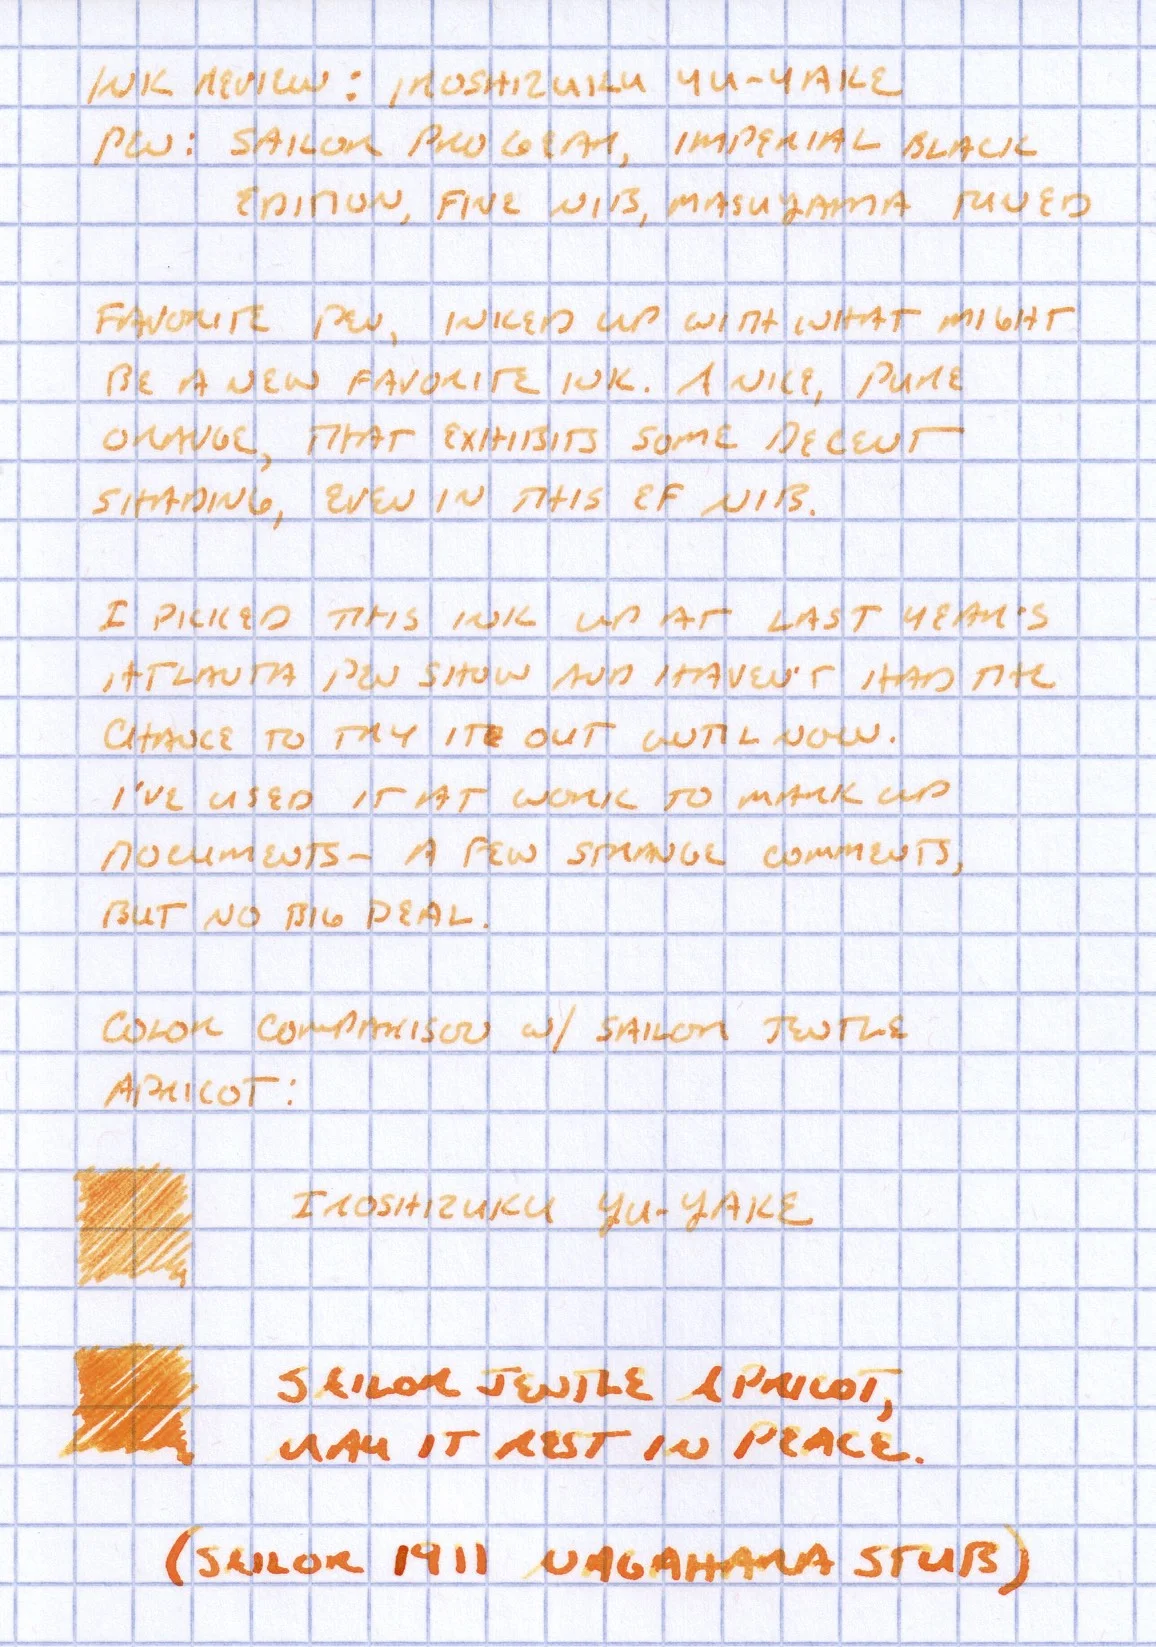 INK REVIEW: IROSHIZUKU YU-YAKE
PEN: SAILOR PRO GEAR, IMPERIAL BLACK
EDITION, FINE NIB, MASUYAMA TUNED
FAVORITE PEN, INKED UP WITH WHAT MIGHT
BE A NEW FAVORITE INK. A NICE, PURE
ORANGE, THAT EXHIBITS SOME DECENT
SHADING, EVEN IN THIS EF NIB.
I PICKED THIS INK UP AT LAST YEAR'S
ATLANTA PEN SHOW AND HAVEN'T HAD THE
CHANCE TO TRY IT OUT UNTIL NOW.
I'VE USED IT AT WORK TO MARK UP
DOCUMENTS- A FEW STRANGE COMMENTS,
BUT NO BIG DEAL.
COLOR COMPARISON W/ SAILOR JENTLE
APRICOT:
IROSHIZUKU YU-YAKE
SAILOR JENTLE APRICOT,
MAY IT REST IN PEACE.
(SAILOR 1911 NAGAHARA STUB)